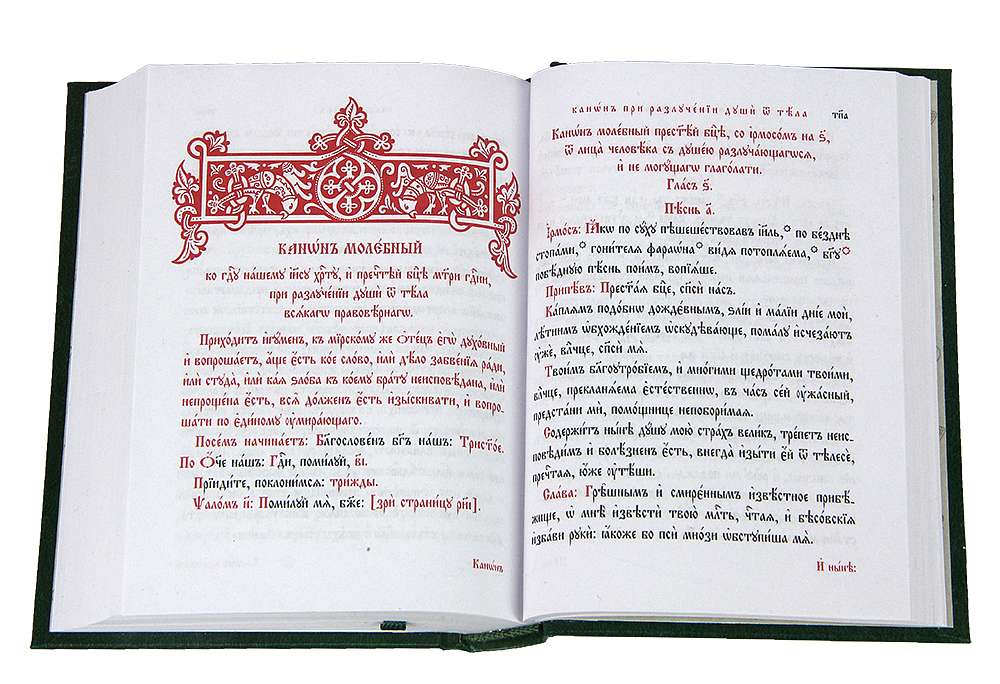 Канѡ́нъ моле́бный
ко гдⷭ҇у на́шему і҆и҃су хрⷭ҇ту̀, и҆ пречⷭ҇тѣй бцⷣѣ мт҃ри гдⷭ҇ни,
при разлꙋче́нїи дꙋшѝ ѿ тѣ́ла
всѧ́кагѡ правовѣ́рнагѡ.
Прихо́дитъ и҆гꙋ́менъ, къ мїрско́мꙋ же ѻ҆те́цъ є҆гѡ̀ дꙋхо́вный
и҆ вопроша́етъ, а҆́ще є҆́сть ко́е сло́во, и҆лѝ дѣ́ло забве́нїѧ ра́ди,
и҆лѝ стꙋда̀, и҆лѝ ка́ѧ ѕло́ба къ ко́емꙋ бра́тꙋ неисповѣ́дана, и҆лѝ
непроще́на є҆́сть, всѧ̑ до́лженъ є҆́сть и҆зы́скивати, и҆ вопро-
ша́ти по є҆ди́номꙋ ᲂу҆мира́ющаго.
Посе́мъ начина́етъ: Бл҃гослове́нъ бг҃ъ на́шъ: Трист҃о́е.
По Ѻ҆́ч҃е на́шъ: Гдⷭ҇и, поми́лꙋй, в҃і.
Прїиди́те, поклони́мсѧ: три́жды.
Ѱало́мъ н҃: Поми́лꙋй мѧ̀, бж҃е: [зрѝ страни́цꙋ рн҃і].
Канѡ́нъ
канѡ́нъ при разлꙋче́нїи дꙋшѝ ѿ тѣ́ла тп҃а
Канѡ́нъ моле́бный прест҃ѣ́й бцⷣѣ, со і҆рмосо́мъ на ѕ҃,
ѿ лица̀ человѣ́ка съ дꙋше́ю разлꙋча́ющагѡсѧ,
и҆ не могꙋ́щагѡ глаго́лати.
Гла́съ ѕ҃.
Пѣ́снь а҃.
І҆рмо́съ: Ꙗ҆́кѡ по сꙋ́хꙋ пѣшеше́ствовавъ і҆и҃ль,* по бе́зднѣ
стопа́ми,* гони́телѧ фараѡ́на* ви́дѧ потоплѧ́ема,* бг҃ꙋ*
побѣ́днꙋю пѣ́снь пои́мъ, вопїѧ́ше.
Припѣ́въ: Прест҃а́ѧ бцⷣе, сп҃сѝ на́съ.
Ка́плѧмъ подо́бнѡ дожде́внымъ, ѕлі́и и҆ ма́лїи дні́е моѝ,
лѣ́тнимъ ѡ҆бхожде́нїемъ ѡ҆скꙋдѣва́юще, пома́лꙋ и҆счеза́ютъ
ᲂу҆жѐ, влⷣчце, сп҃сѝ мѧ̀.
Твои́мъ бл҃гоꙋтро́бїемъ, и҆ мно́гими щедро́тами твои́ми,
влⷣчце, преклонѧ́ема є҆сте́ственнѡ, въ ча́съ се́й ᲂу҆жа́сный,
предста́ни мѝ, помо́щнице непобори́маѧ.
Содержи́тъ ны́нѣ дꙋ́шꙋ мою̀ стра́хъ вели́къ, тре́петъ неис-
повѣди́мъ и҆ болѣ́зненъ є҆́сть, внегда̀ и҆зы́ти є҆́й ѿ тѣлесѐ,
пречⷭ҇таѧ, ю҆́же ᲂу҆тѣ́ши.
Сла́ва: Грѣ́шнымъ и҆ смире́ннымъ и҆звѣ́стное прибѣ́-
жище, ѡ҆ мнѣ̀ и҆звѣстѝ твою̀ млⷭ҇ть, чⷭ҇таѧ, и҆ бѣсо́вскїѧ
и҆зба́ви рꙋкѝ: ꙗ҆́коже бо псѝ мно́зи ѡ҆бстꙋпи́ша мѧ̀.
И҆ ны́нѣ: